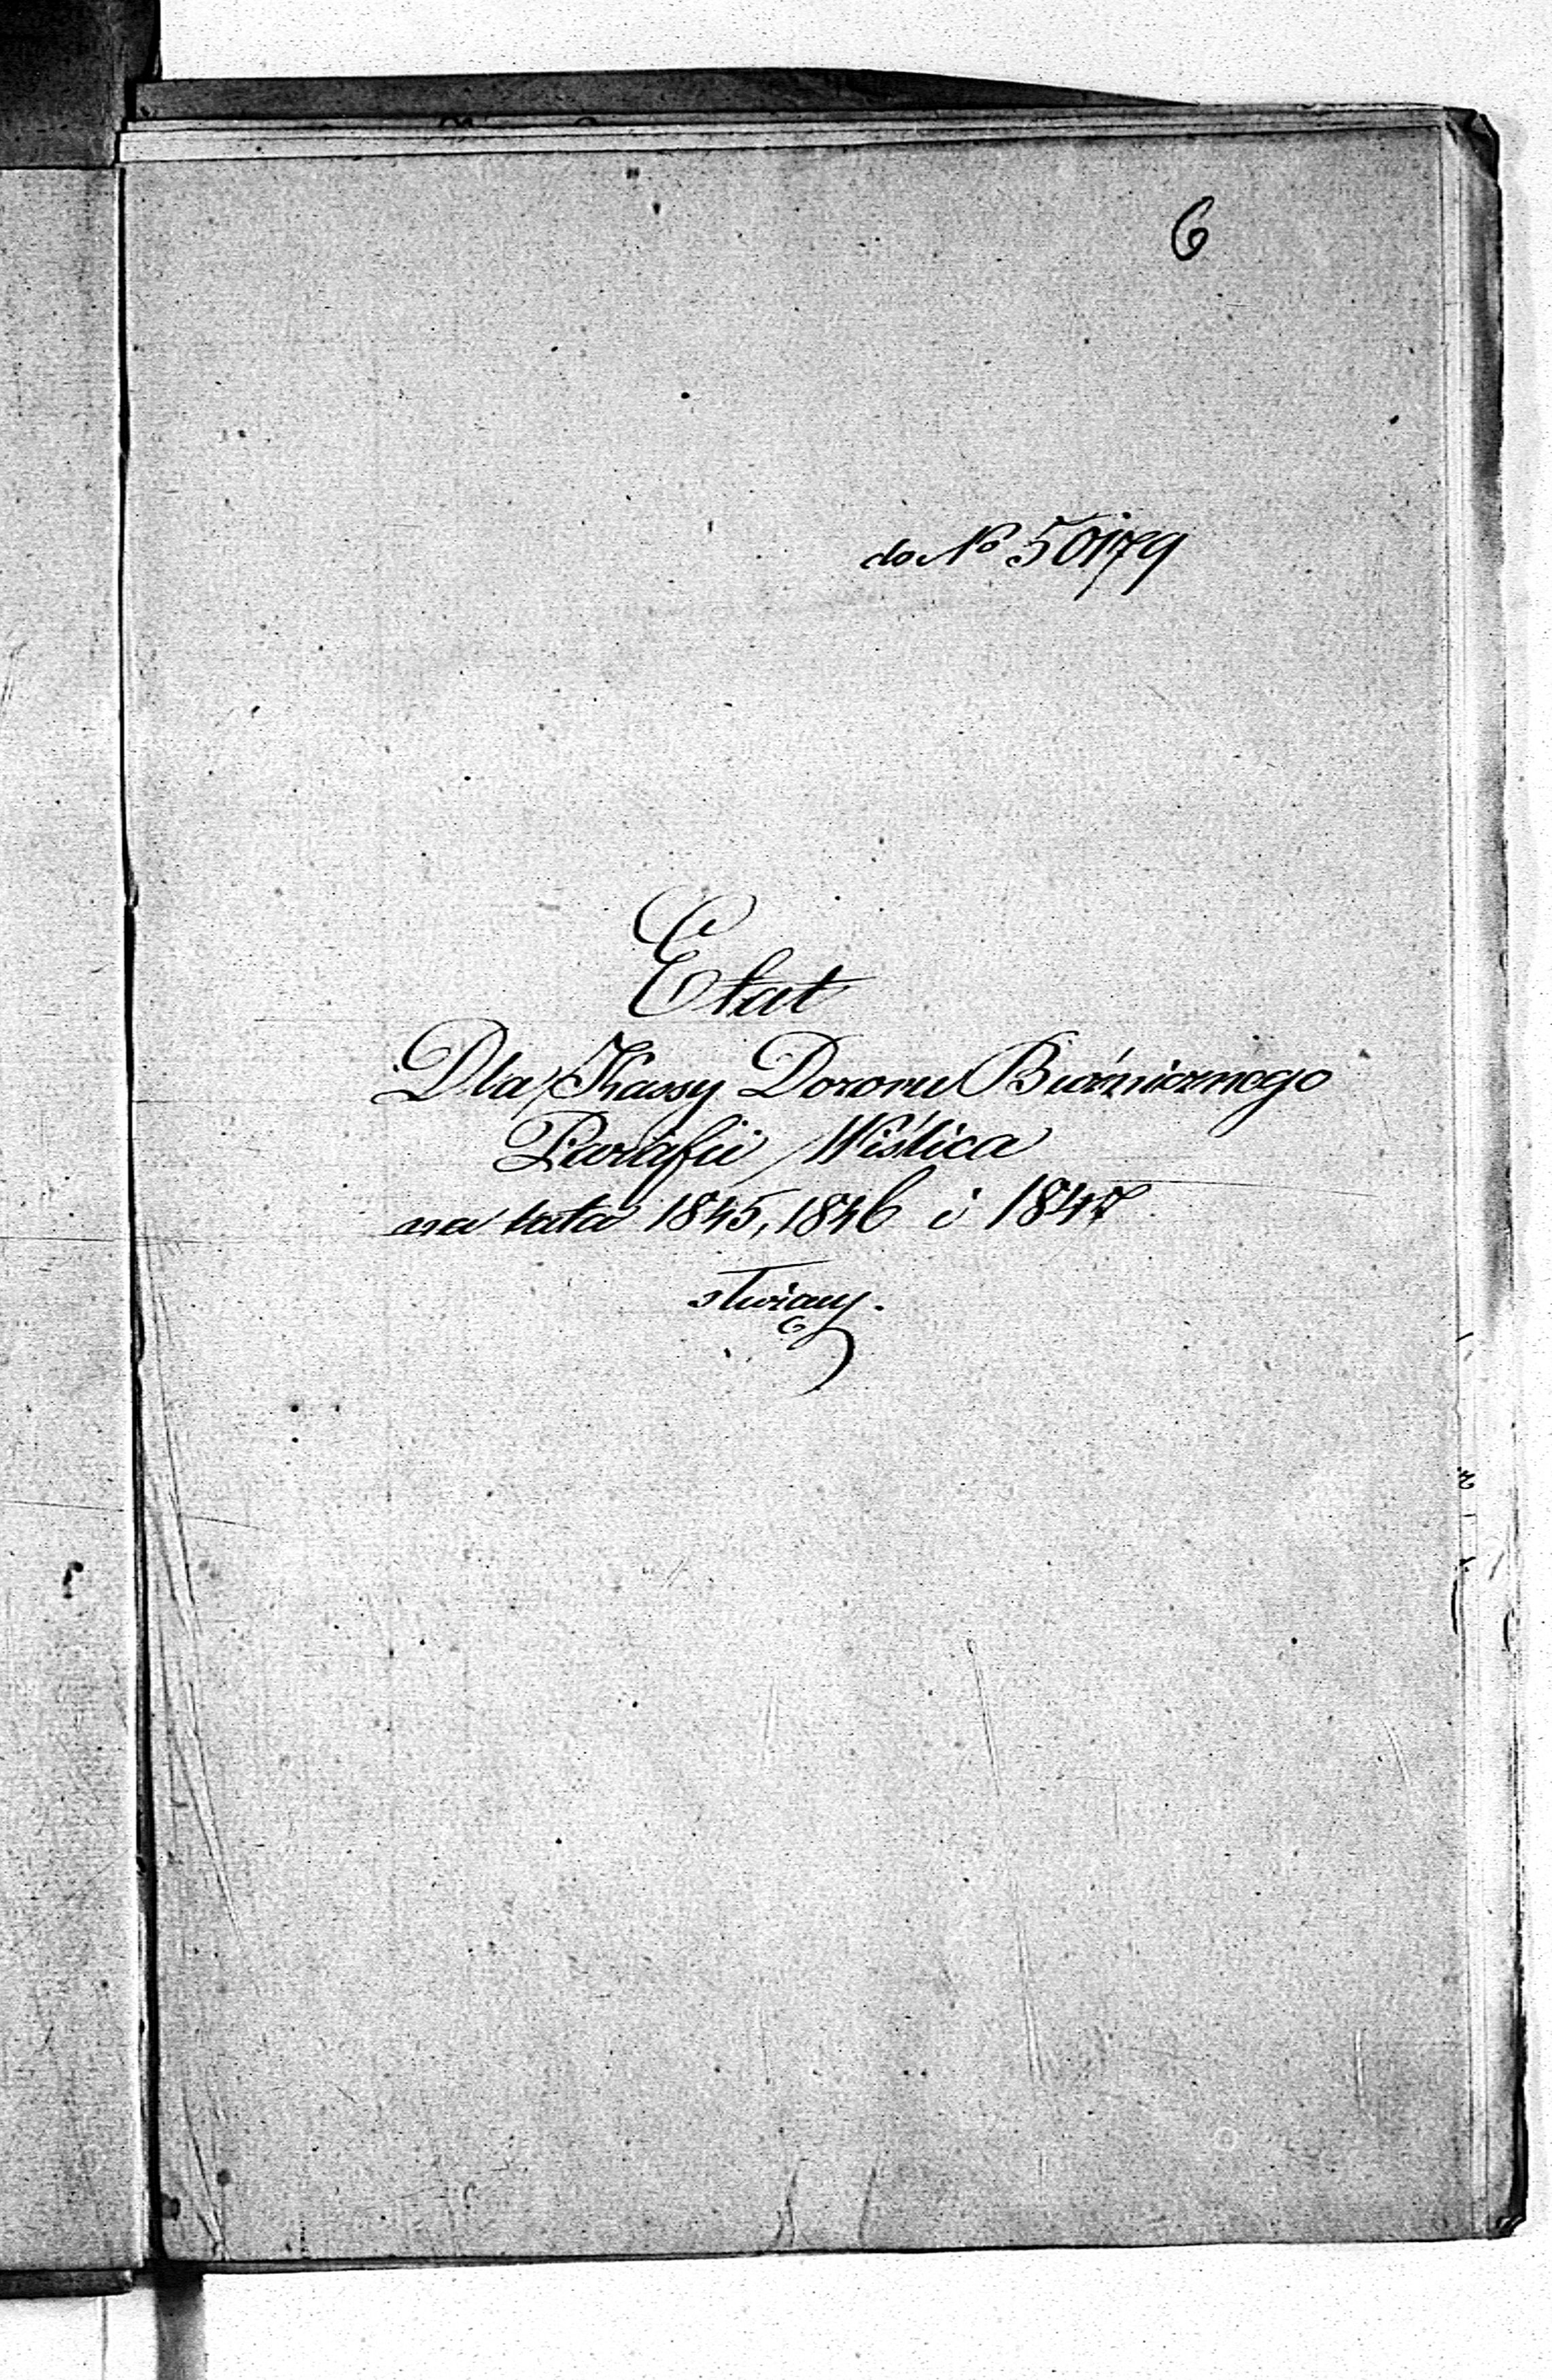 6
do No 50179
Etat
Dla Kassy Dozoru Bóżnicznego
Parafii Wiślica
na lata 1845, 1846 i 1847
służący.